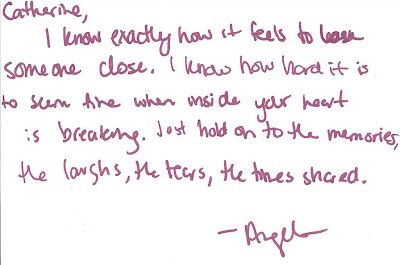 Catherine,
I know exactly how it feels to lose
someone close. I know how hard it is
to seem fine when inside your heart
is breaking. Just hold on to the memories,
the laughs, the tears, the times shared.
- Angela